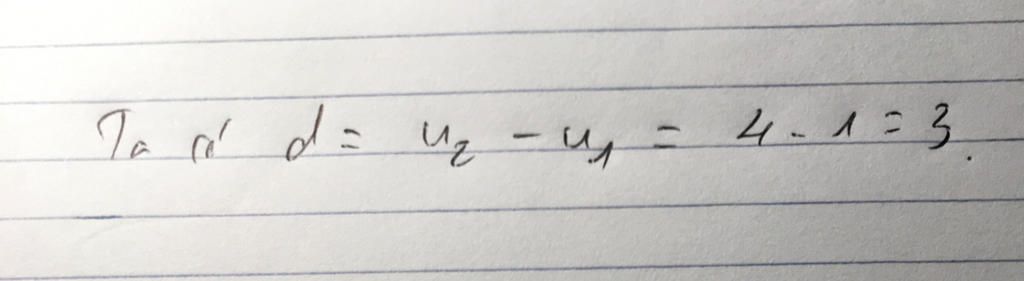 Ta có d = u₂ - u₁ = 4 - 1 = 3.